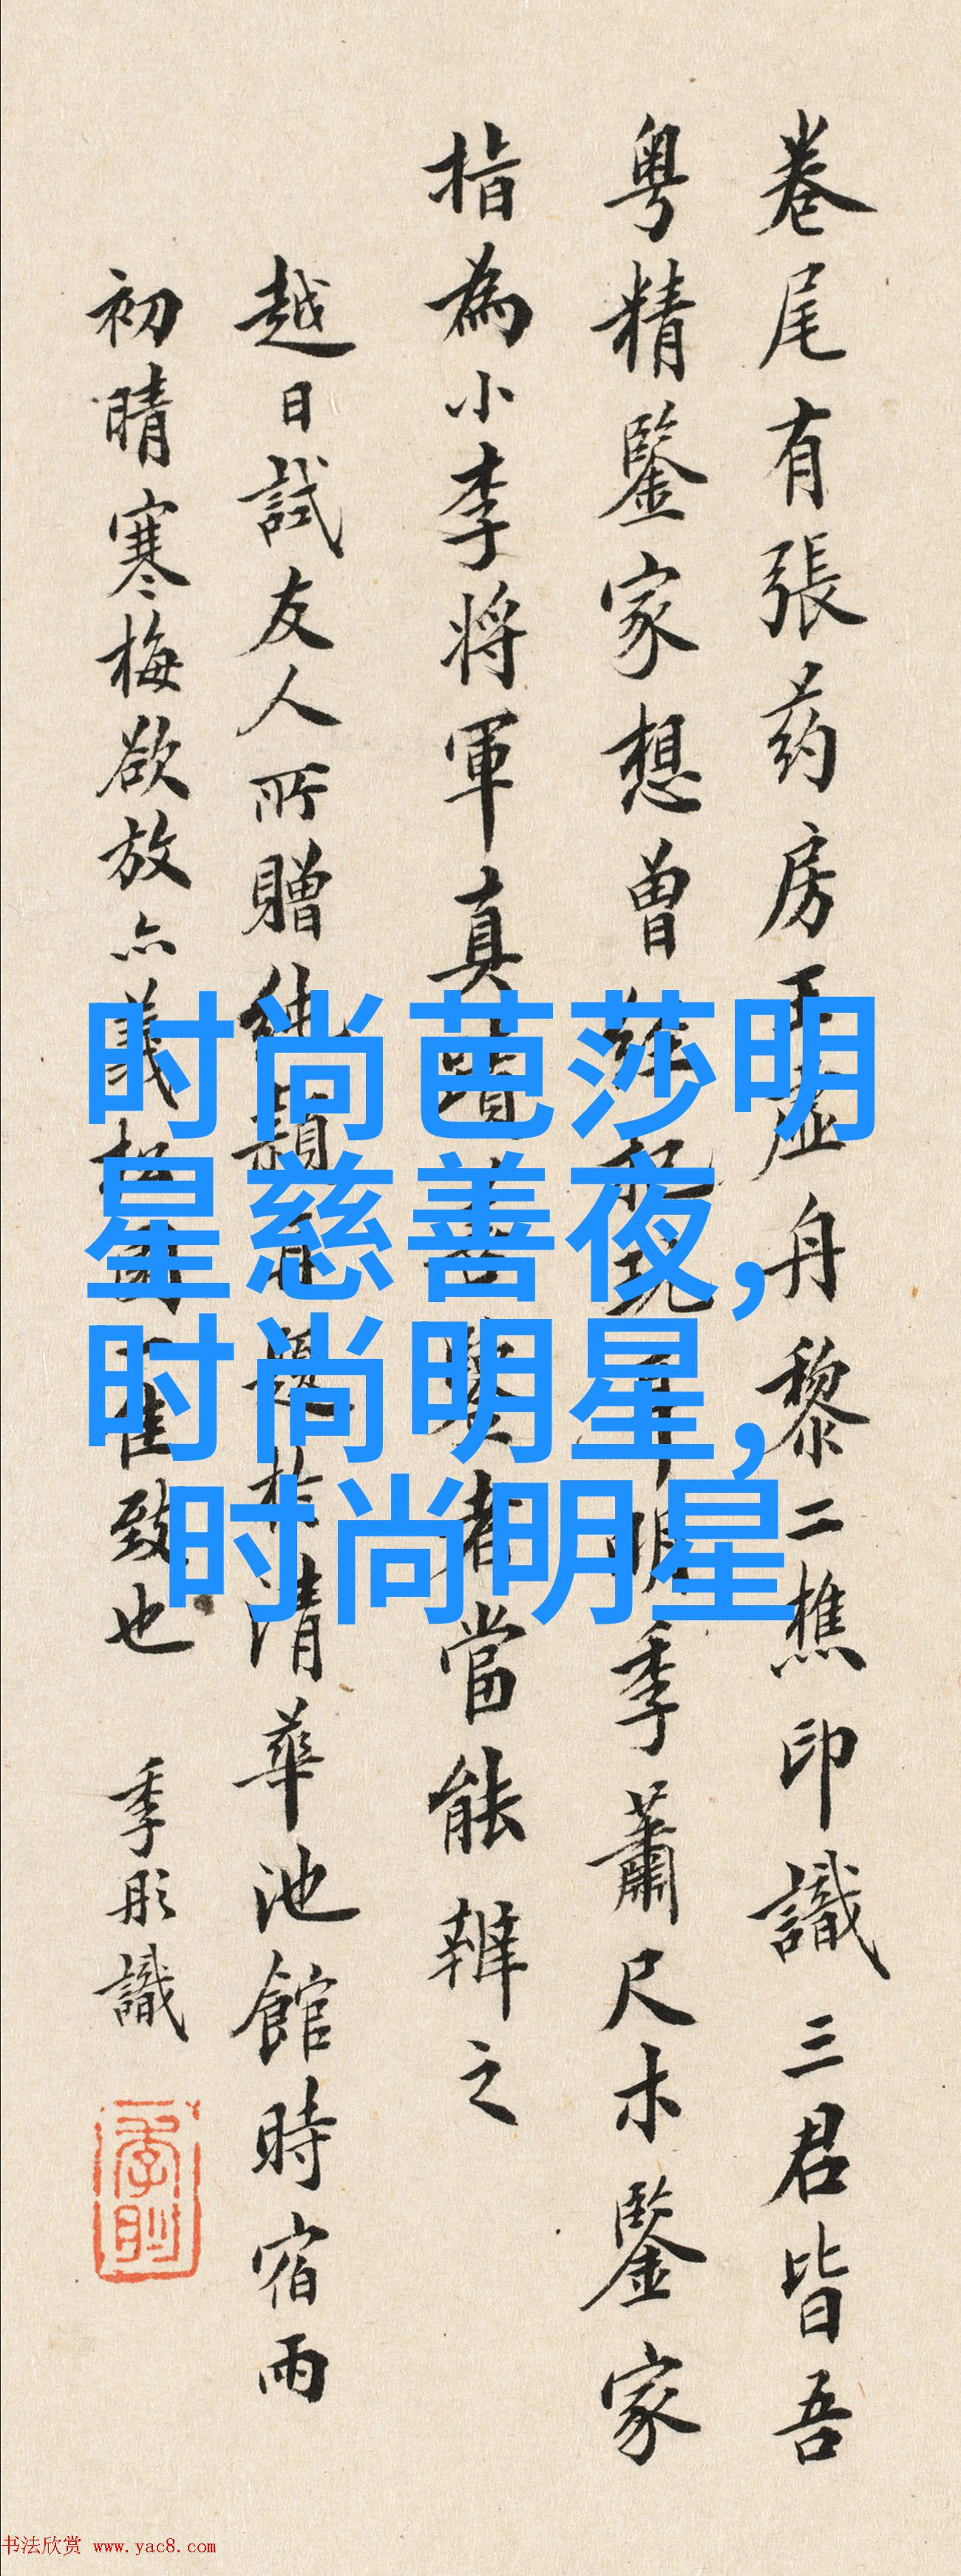 卷尾有張药房王虚舟黎二樵印識三君皆吾
粤精鑒家想曾明季蕭尺木鑒家
指為小李将軍真者當能辨之
越日試友人所贈題於清華池館時宿雨
初晴寒梅欲放亦佳致也 季彤識
时尚芭莎明
星慈善夜,
时尚明星,
时尚明星
书法欣赏 www.yac8.com